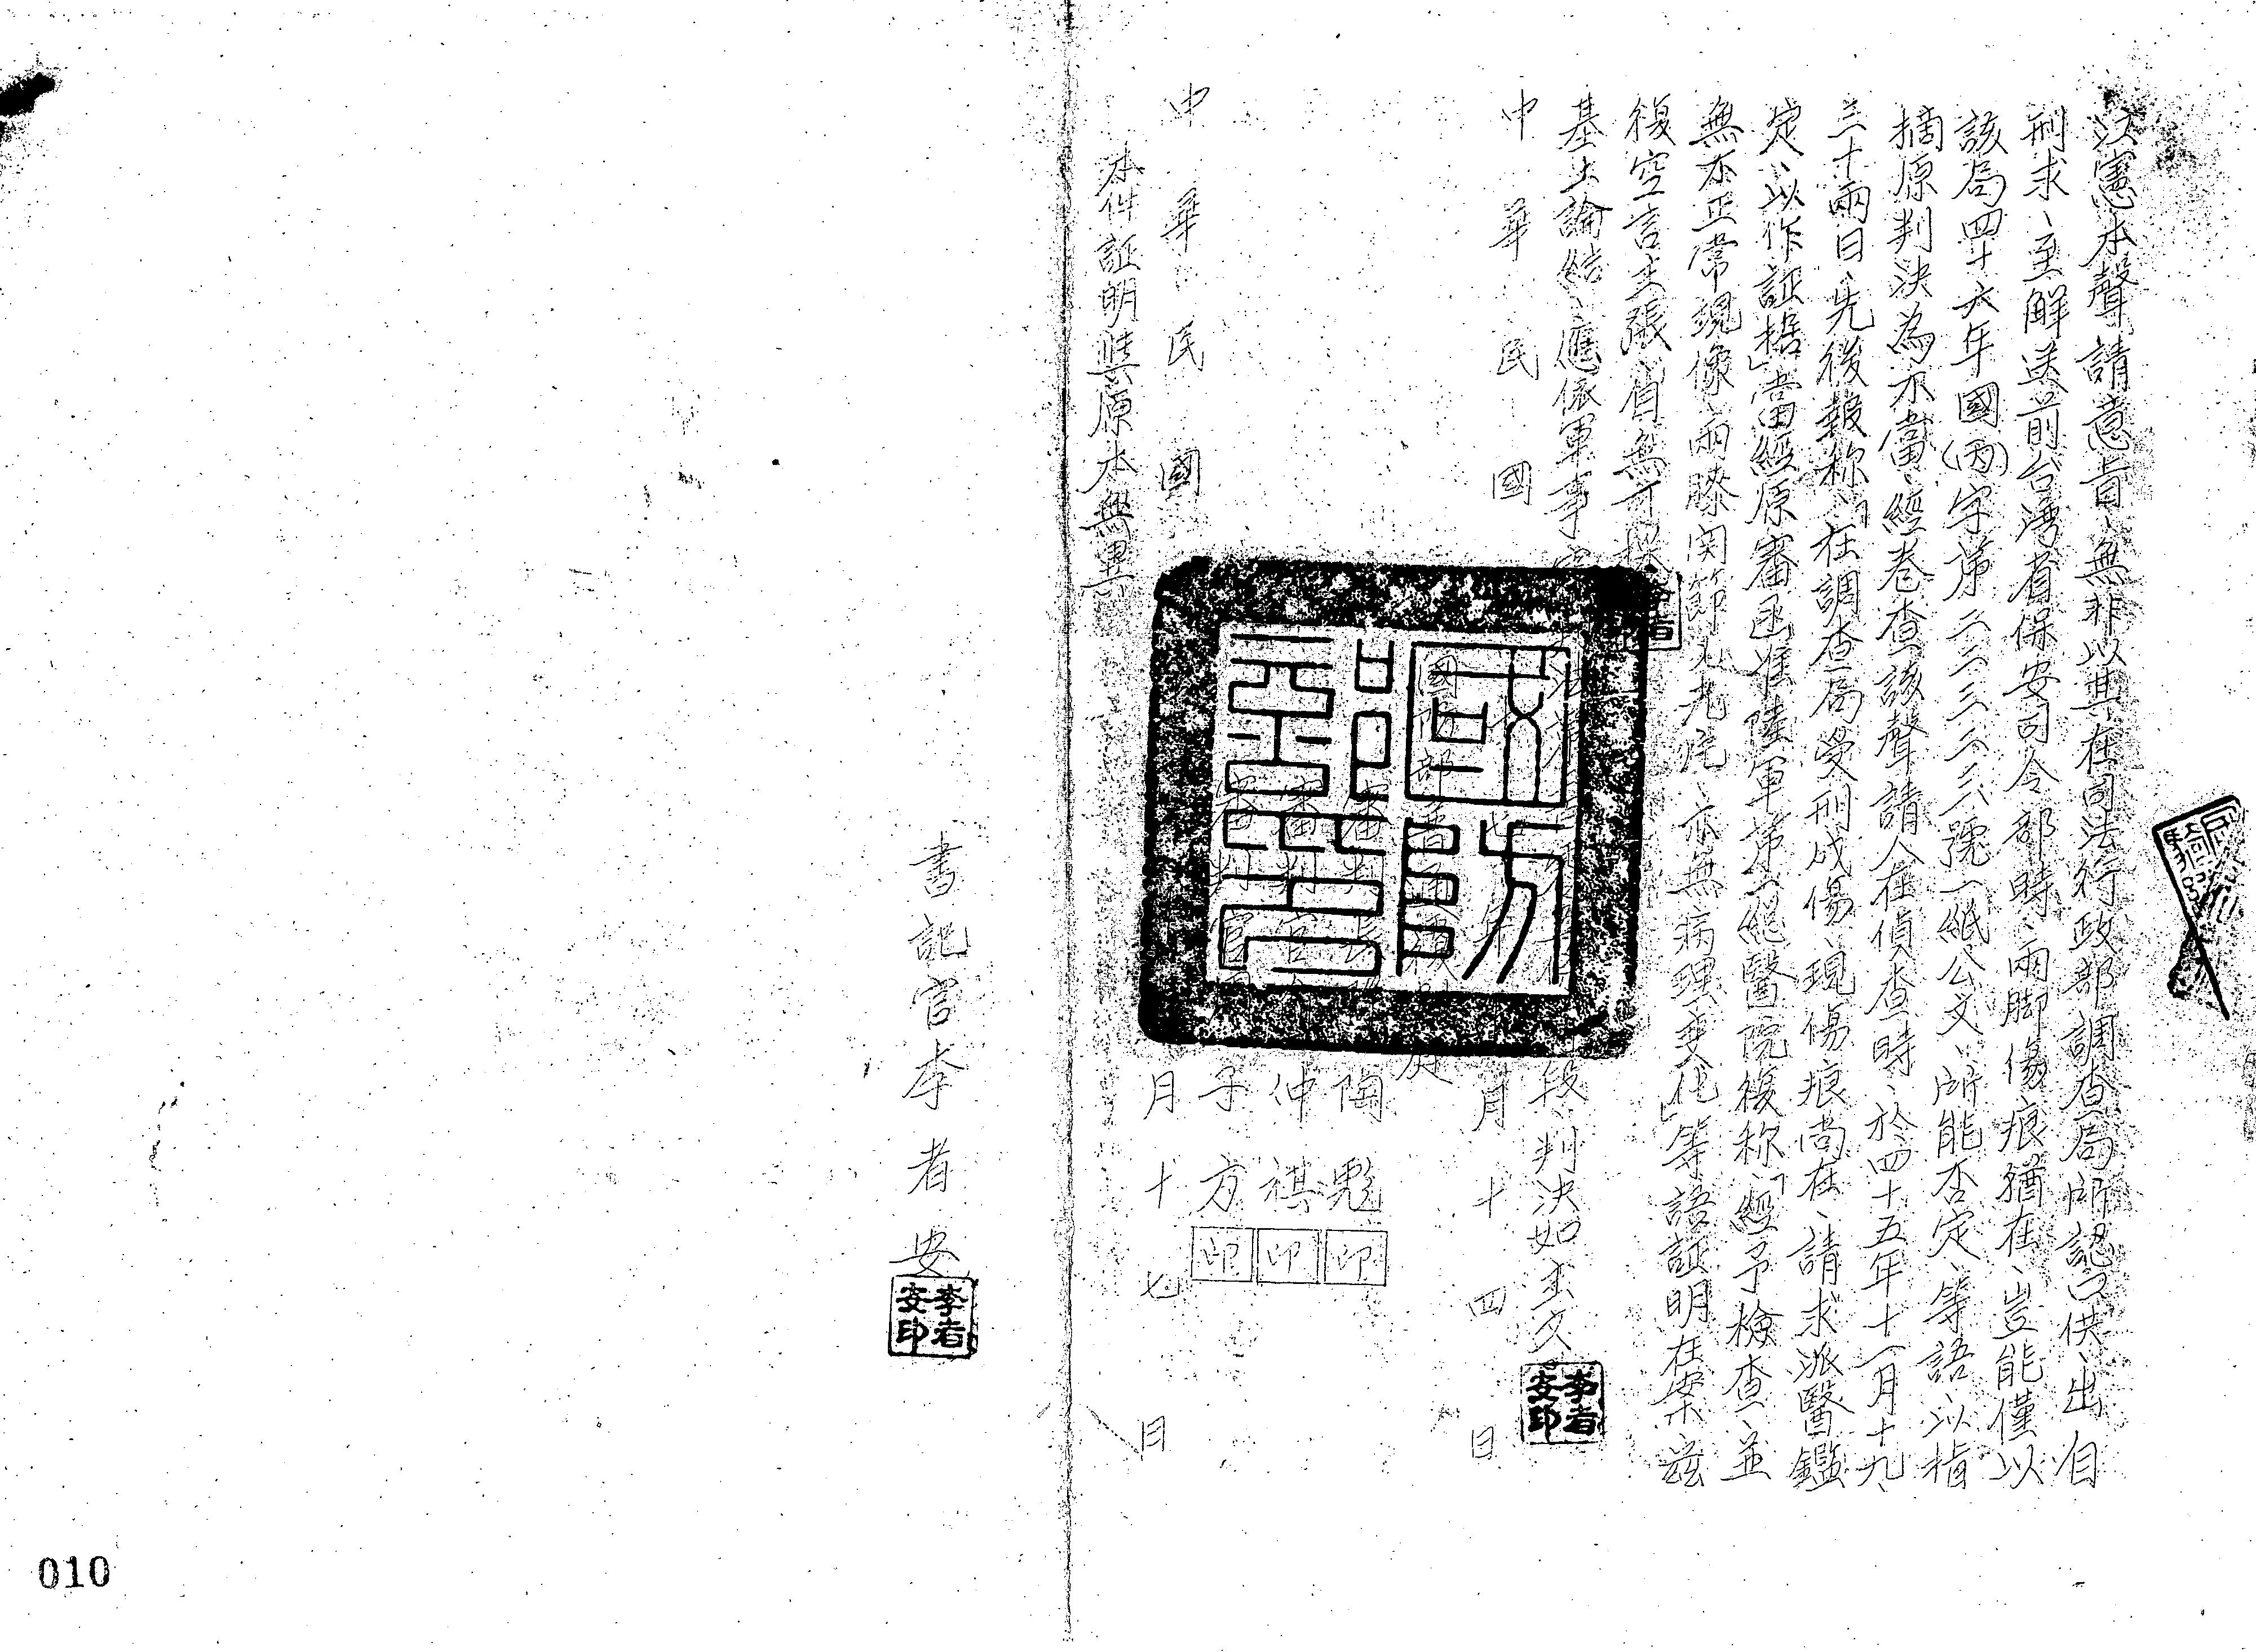 法憲本聲請意旨、無非以其在司法行政部調查局所認口供、出自
刑求、主解送前台湾省保安司令部時、兩脚傷痕猶在、豈能僅以
該局四十六年國(丙)字第 號一紙公文、所能否定、等語以指
摘原判決為不當、經卷查該聲請人在偵查時、於四十五年十一月十九
三十兩日、先後報称、「在調查局受刑成傷、現傷痕尚在、請求派醫鑑
定、以作証据」當經原審函准陸軍第一總醫院複称、「經予檢查、並
無不正常現像、兩膝関節 亦無病理変化」等語証明在案、茲
復空言主張、自無可採
基上論結、應依軍事 段、判決如主文
李者安印
中華民國 年 月十四日
國防部 庭
審判長 陶 印
審判官 仲祺 印
審判官 子方 印
中華民國 月十七日
本件証明與原本無異
書記官李者安
李者安印
010